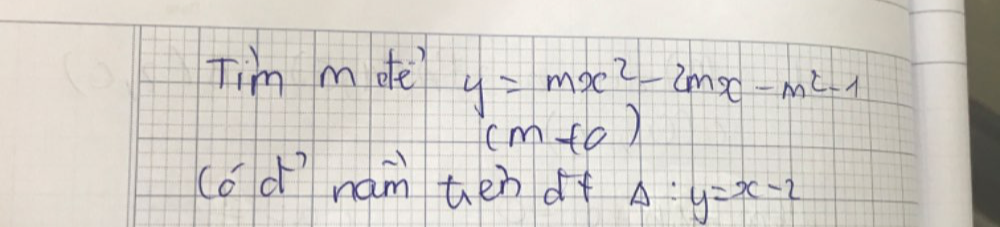 Tìm m để y = mx² - 2mx - m² - 1
(m ≠ 0)
Có đ' nằm trên đt Δ : y = x - 2